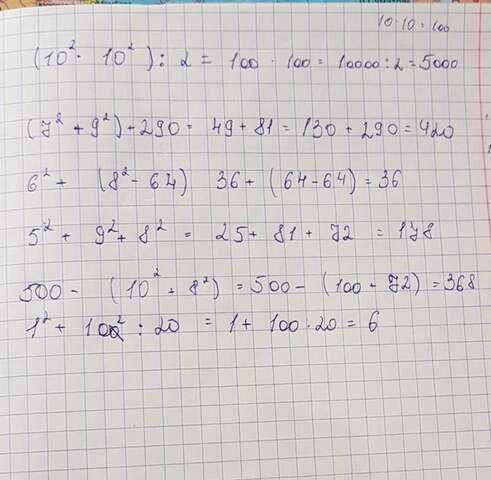 10·10=100
(10² · 10²) : 2 = 100 · 100 = 10000 : 2 = 5000
(7² + 9²) + 290 = 49 + 81 = 130 + 290 = 420
6² + (8² - 64) 36 + (64 - 64) = 36
5² + 9² + 8² = 25 + 81 + 72 = 178
500 - (10² + 8²) = 500 - (100 + 72) = 368
1² + 10² : 20 = 1 + 100 : 20 = 6